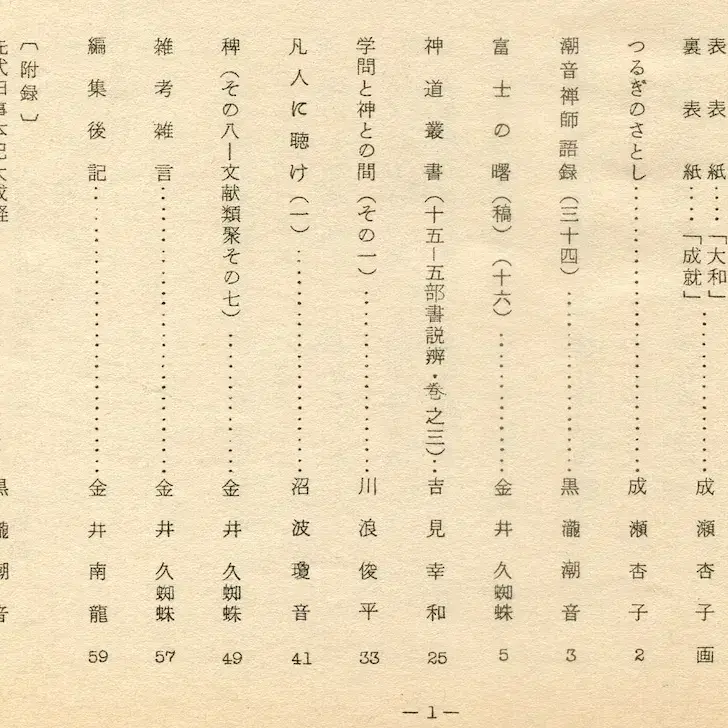 表表紙‥‥「大和」‥‥‥‥‥‥‥‥成瀬杏子画
裏表紙‥‥「成就」
つるぎのさとし‥‥‥‥‥‥‥‥‥‥‥‥成瀬杏子 2
潮音禅師語録(三十四)‥‥‥‥‥‥‥‥黒瀧潮音 3
富士の曙(稿)(十六)‥‥‥‥‥‥‥‥金井久蜘蛛 5
神道叢書(十五―五部書説辨・巻之三)‥吉見幸和 25
学問と神との間(その一)‥‥‥‥‥‥‥川浪俊平 33
凡人に聴け(一)‥‥‥‥‥‥‥‥‥‥‥沼波瓊音 41
稗(その八―文献類聚その七)‥‥‥‥‥金井久蜘蛛 49
雑考雑言‥‥‥‥‥‥‥‥‥‥‥‥‥‥‥金井久蜘蛛 57
編集後記‥‥‥‥‥‥‥‥‥‥‥‥‥‥‥金井南龍 59
〔附録〕
先代旧事本紀大成経 黒瀧潮音
―1―